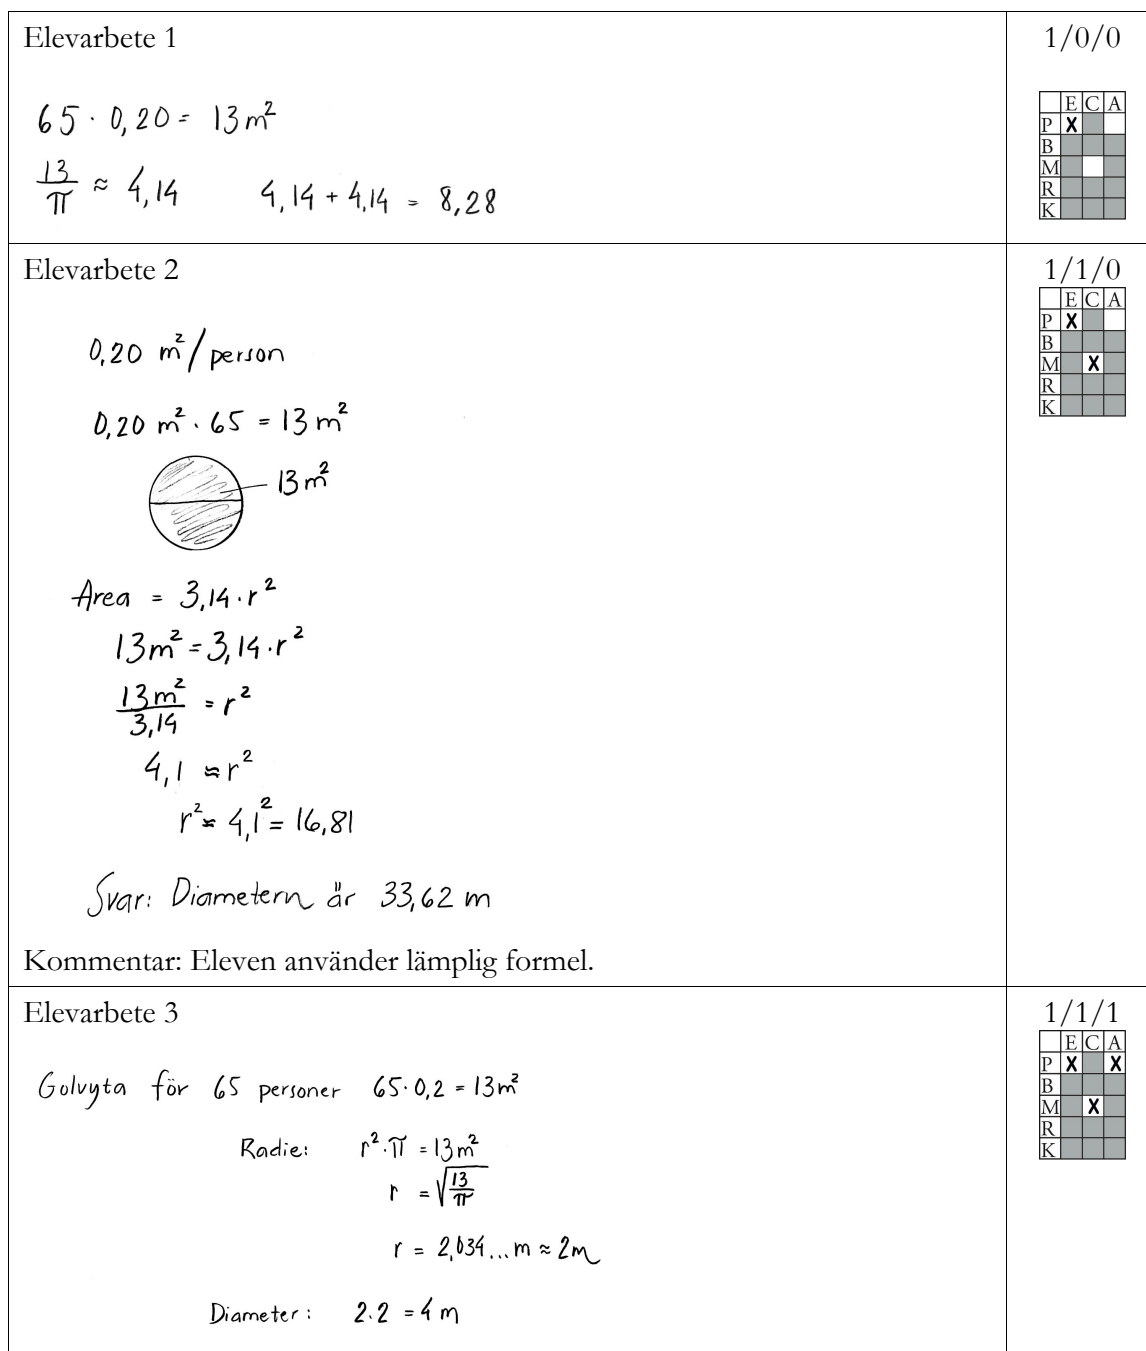 Elevarbete 1
1/0/0
65 · 0,20 = 13 m²
13/π ≈ 4,14 4,14 + 4,14 = 8,28
E C A
P X
B
M
R
K
Elevarbete 2
1/1/0
0,20 m²/person
0,20 m² · 65 = 13 m²
13 m²
Area = 3,14 · r²
13 m² = 3,14 · r²
13 m²/3,14 = r²
4,1 ≈ r²
r² ≈ 4,1² = 16,81
Svar: Diametern är 33,62 m
Kommentar: Eleven använder lämplig formel.
E C A
P X
B
M X
R
K
Elevarbete 3
1/1/1
Golvyta för 65 personer 65 · 0,2 = 13 m²
Radie: r² · π = 13 m²
r = √(13/π)
r = 2,034... m ≈ 2 m
Diameter: 2·2 = 4 m
E C A
P X X
B
M X
R
K